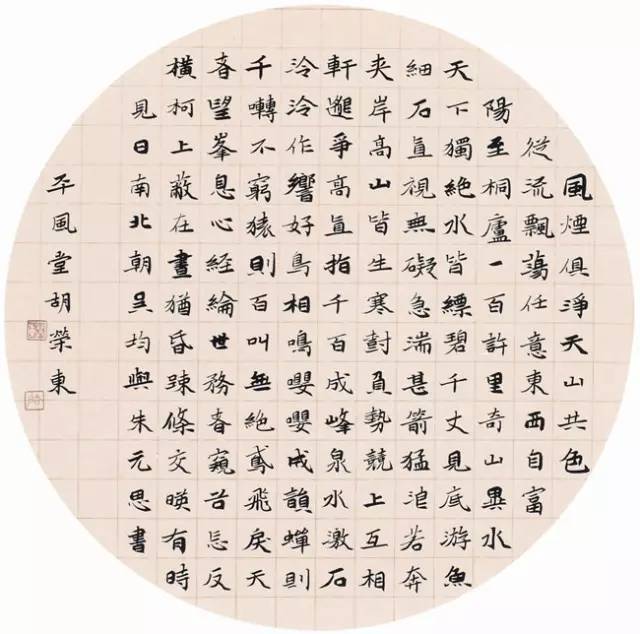 風煙俱淨天山共色
從流飄蕩任意東西自富
陽至桐廬一百許里奇山異水
天下獨絕水皆縹碧千丈見底游魚
細石直視無礙急湍甚箭猛浪若奔
夾岸高山皆生寒樹負勢競上互相
軒邈爭高直指千百成峰泉水激石
泠泠作響好鳥相鳴嚶嚶成韻蟬則
千囀不窮猿則百叫無絕鳶飛戾天
者望峯息心經綸世務者窺谷忘反
橫柯上蔽在晝猶昏踈條交暎有時
見日南北朝吳均與朱元思書
平風堂胡榮東